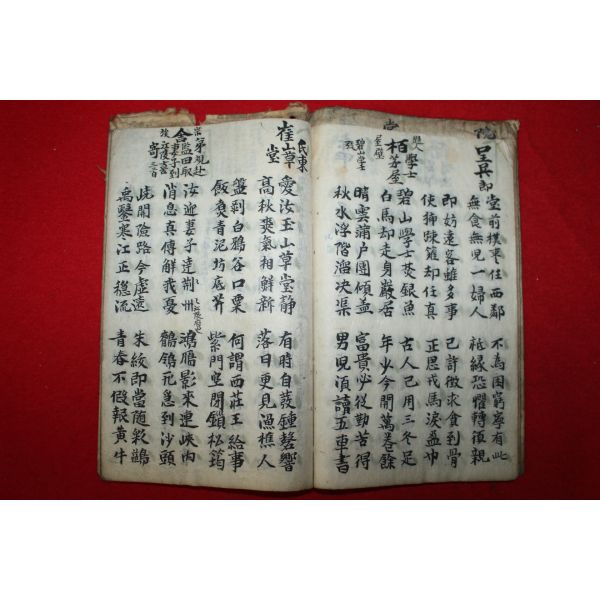 堂前樸棗任西鄰 不爲困窮寧有此
無食無兒一婦人 秪緣恐懼轉須親
即妨遠客雖多事 已訴徵求貧到骨
使揷踈籬却任真 正思戎馬淚盈巾
柏學士茅屋
碧山學士焚銀魚 古人已用三冬足
白馬却走身巖居 年少今開萬卷餘
晴雲滿户團傾盖 富貴必從勤苦得
秋水浮階溜决渠 男兒須讀五車書
崔氏東山草堂
愛汝玉山草堂静 有時自發鍾磬響
高秋爽氣相鮮新 落日更見漁樵人
盤剥白鴉谷口栗 何謂西莊王給事
飯煑青泥坊底芹 柴門空閉鎖松筠
舍弟觀赴藍田取妻子到江陵喜寄三首
汝迎妻子達荆州 鴻鴈影來連峽内
消息真傳解我憂 鶺鴒飛急到沙頭
嶢關險路今虛遠 朱紱即當隨彩鷁
禹鑿寒江正穩流 青春不假報黄牛